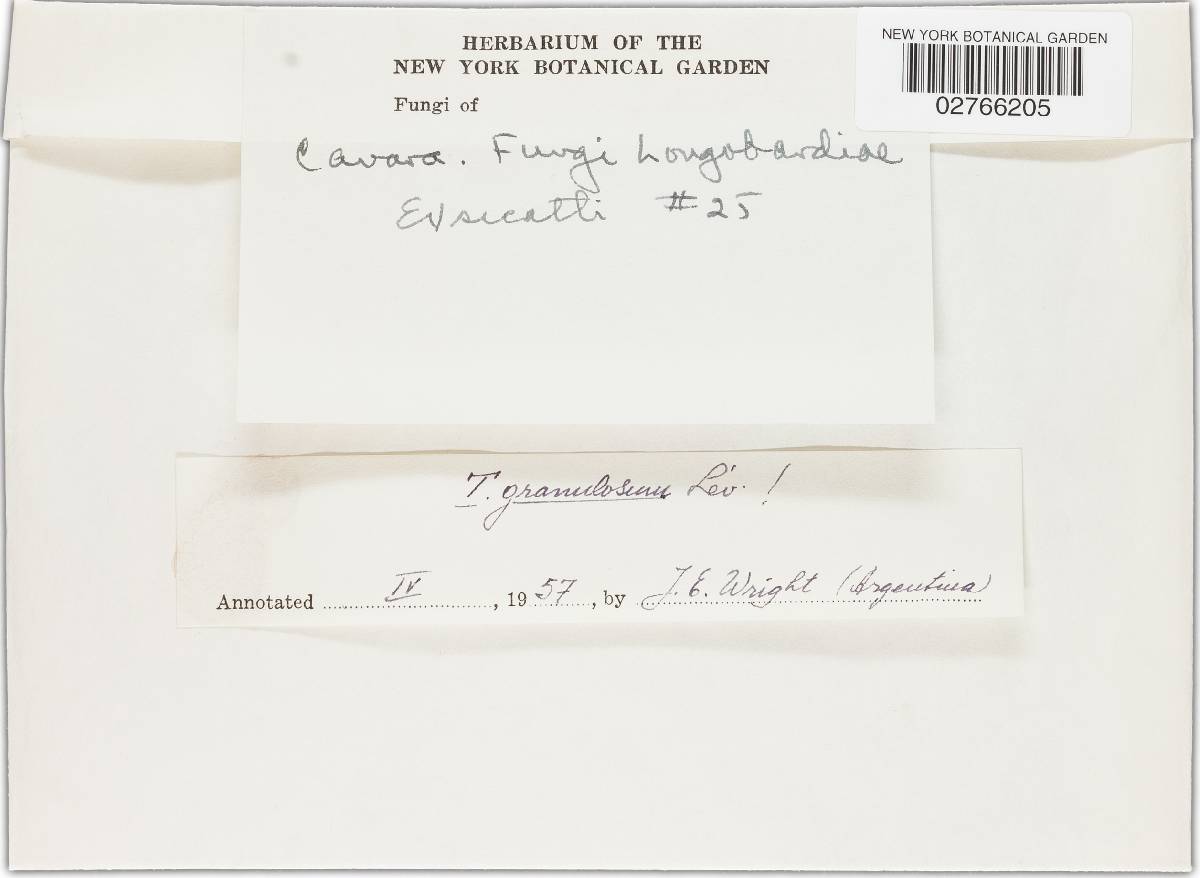 HERBARIUM OF THE
NEW YORK BOTANICAL GARDEN
Fungi of
NEW YORK BOTANICAL GARDEN
02766205
Cavara. Fungi Longobardiae
Exsicatti #25
T. granulosum Lév. !
Annotated IV, 1957, by J. E. Wright (Argentina)